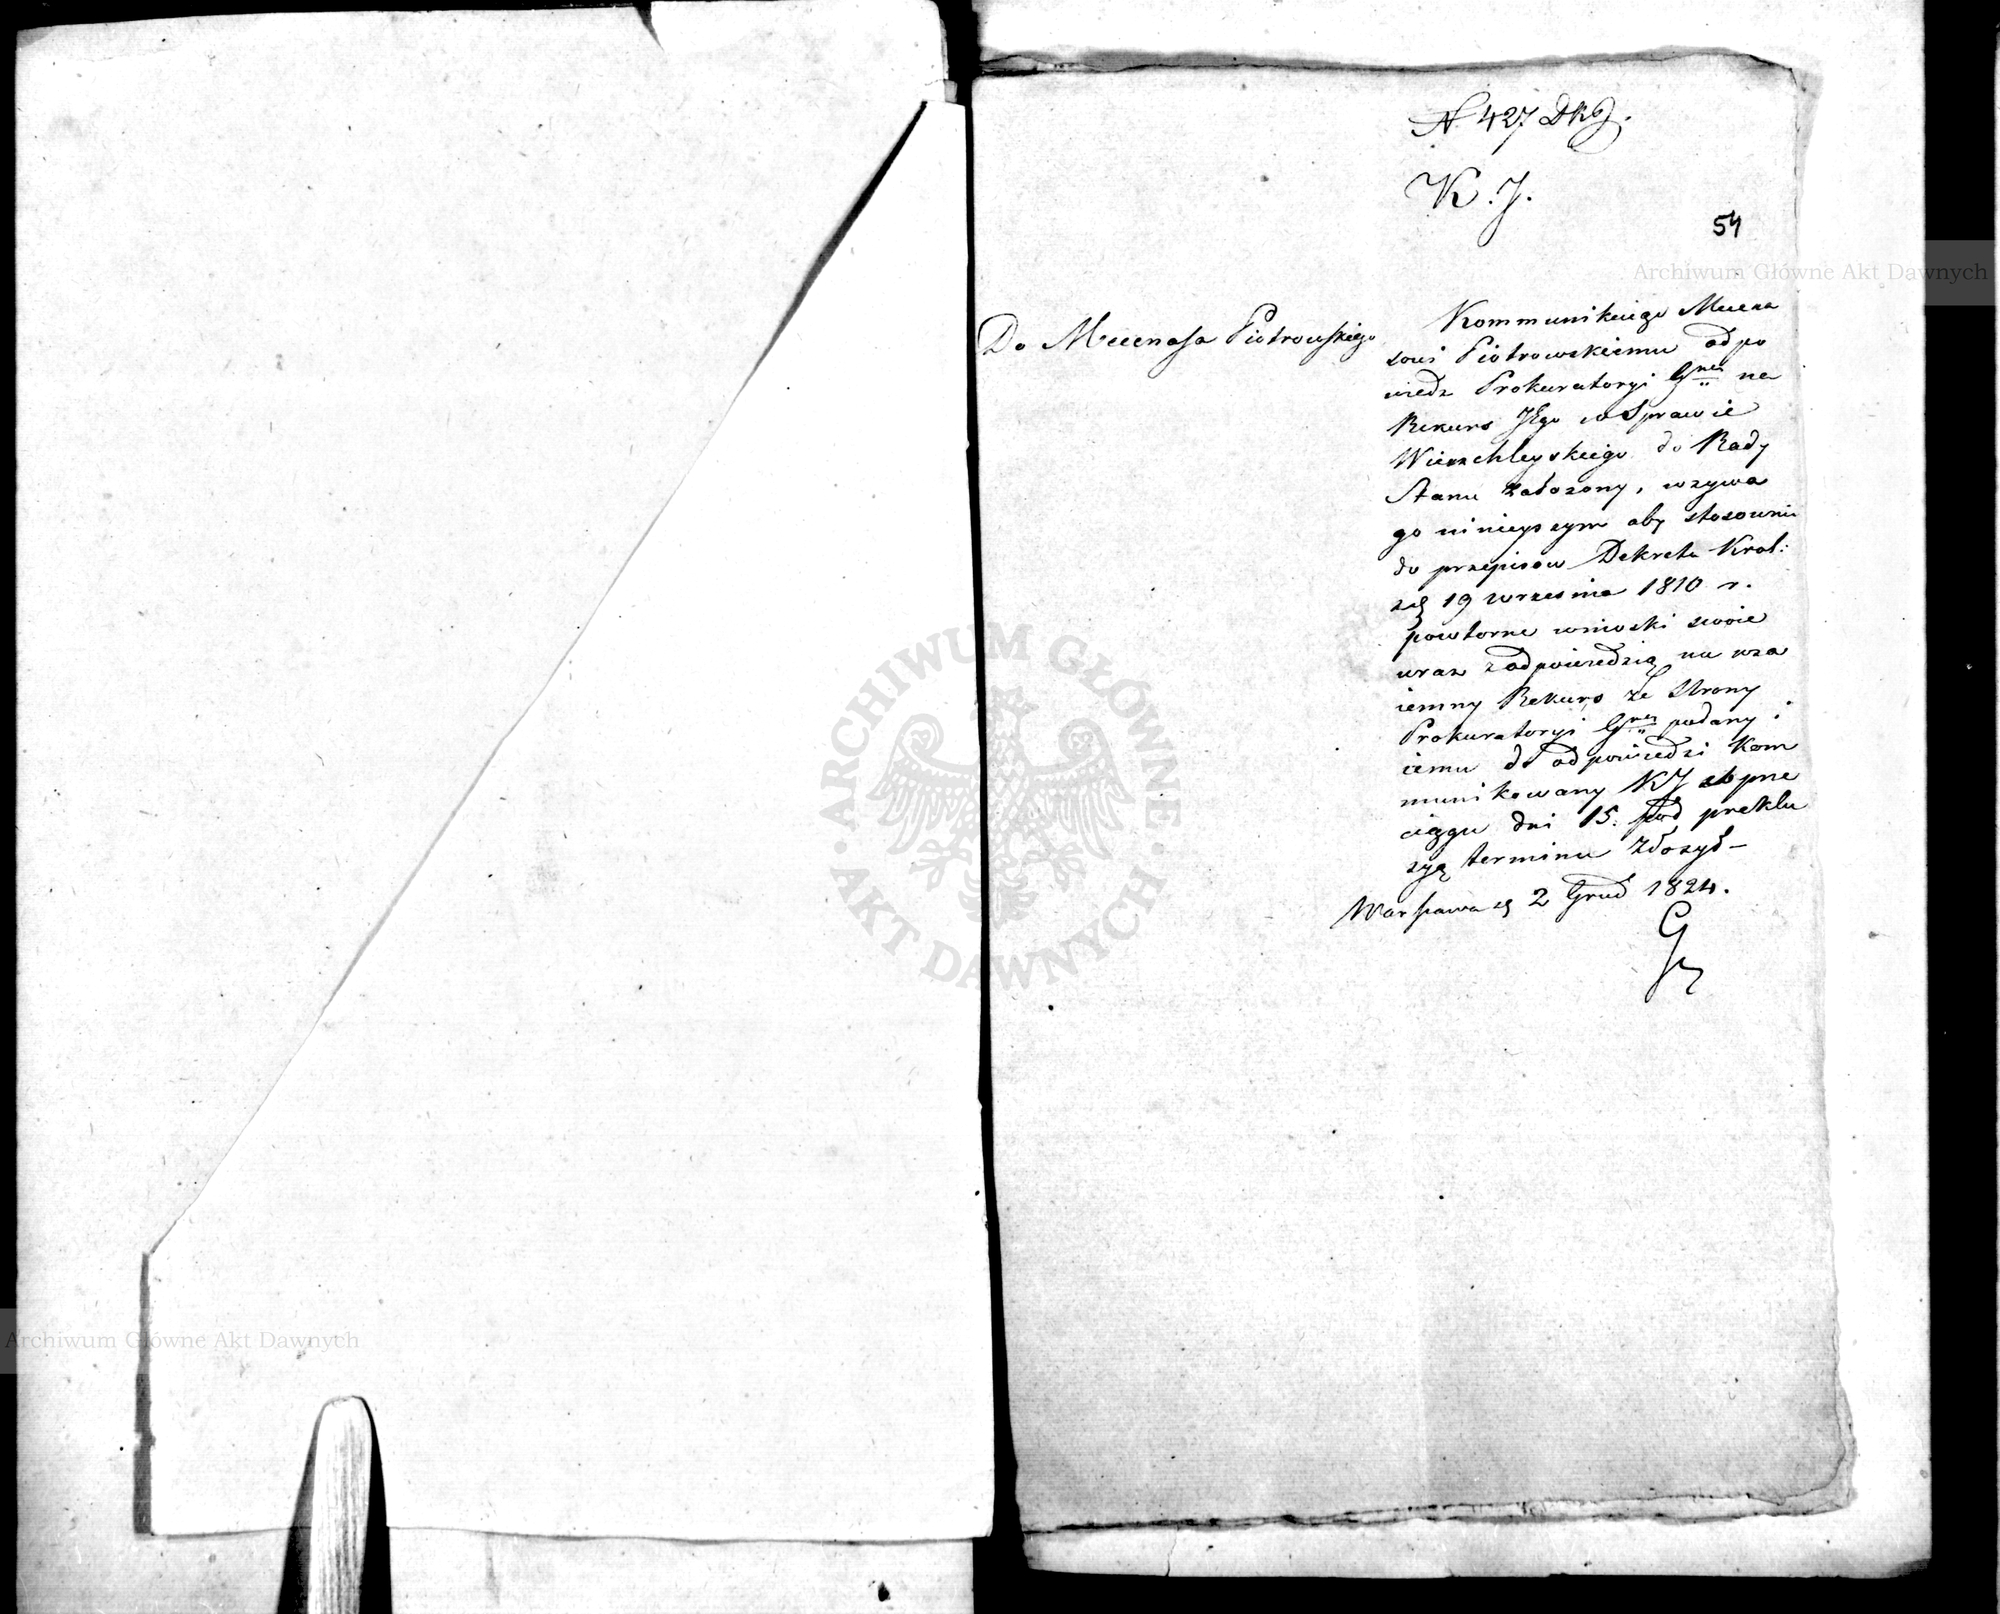 N 427 DKJ.
K. J.
54
Archiwum Główne Akt Dawnych
Do Mecenasa Piotrowskiego
Kommunikuiąc Mecena
sowi Piotrowskiemu odpo
wiedz Prokuratoryi Gnej na
Rekurs JEgo w Sprawie
Wierzchleyskiego do Rady
Stanu założony, wzywa
go ninieyszym aby stosownie
do przepisow Dekretu Krol:
zd 19 Września 1810 r.
powtorne wnioski swoie
wraz z odpowiedzią na wza
iemny Rekurs ze Strony
Prokuratoryi Gnej podany i
iemu do odpowiedzi kom
munikowany KJ
ciągu dni 15. pod preklu
zyą terminu złożył –
Warszawa d 2 Grud 1824.
ARCHIWUM GŁÓWNE
AKT DAWNYCH
Archiwum Główne Akt Dawnych